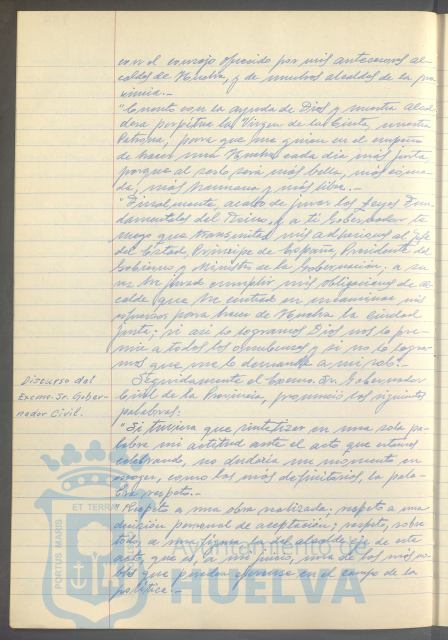 con el consejo ofrecido por mis antecesores al-
caldes de Huelva, y de muchos alcaldes de la pro-
vincia.-
"Cuento con la ayuda de Dios y nuestra Alcal-
desa perpétua la Virgen de la Cinta, nuestra
Patrona, para que me guien en el empeño
de hacer una Huelva cada día más justa
porque al serlo será más bella, más
más humana y más libre.-
"Finalmente, acabo de jurar las Leyes Fun-
damentales del Reino, y a ti Gobernador te
ruego que transmitas mis adhesiones al Jefe
del Estado, Príncipe de España, Presidente del
Gobierno y Ministro de la Gobernación; a su
vez he jurado cumplir mis obligaciones de al-
calde que he centrado en encaminar mis
esfuerzos para hacer de Huelva la ciudad
justa; si así lo logramos Dios nos lo pre-
mie a todos los onubenses y si no lo logra-
mos que me lo demande a mi solo".
Discurso del
Excmo. Sr. Gober-
nador Civil.
Seguidamente el Excmo. Sr. Gobernador
Civil de la Provincia, pronunció las siguientes
palabras:
"Si tuviera que sintetizar en una sola pa-
labra mi actitud ante el acto que estamos
celebrando, no dudaría un momento en
escoger, como los más definitorios, la pala-
bra respeto.-
"Respeto a una obra realizada; respeto a una
decisión personal de aceptación; respeto, sobre
todo, a una figura la del alcalde, eje de este
acto, que es, a mi juicio, una de las más no-
bles que pueden ejercerse en el campo de la
política.-
PORTUS MARIS
ET TERRAE
Ayuntamiento de
HUELVA